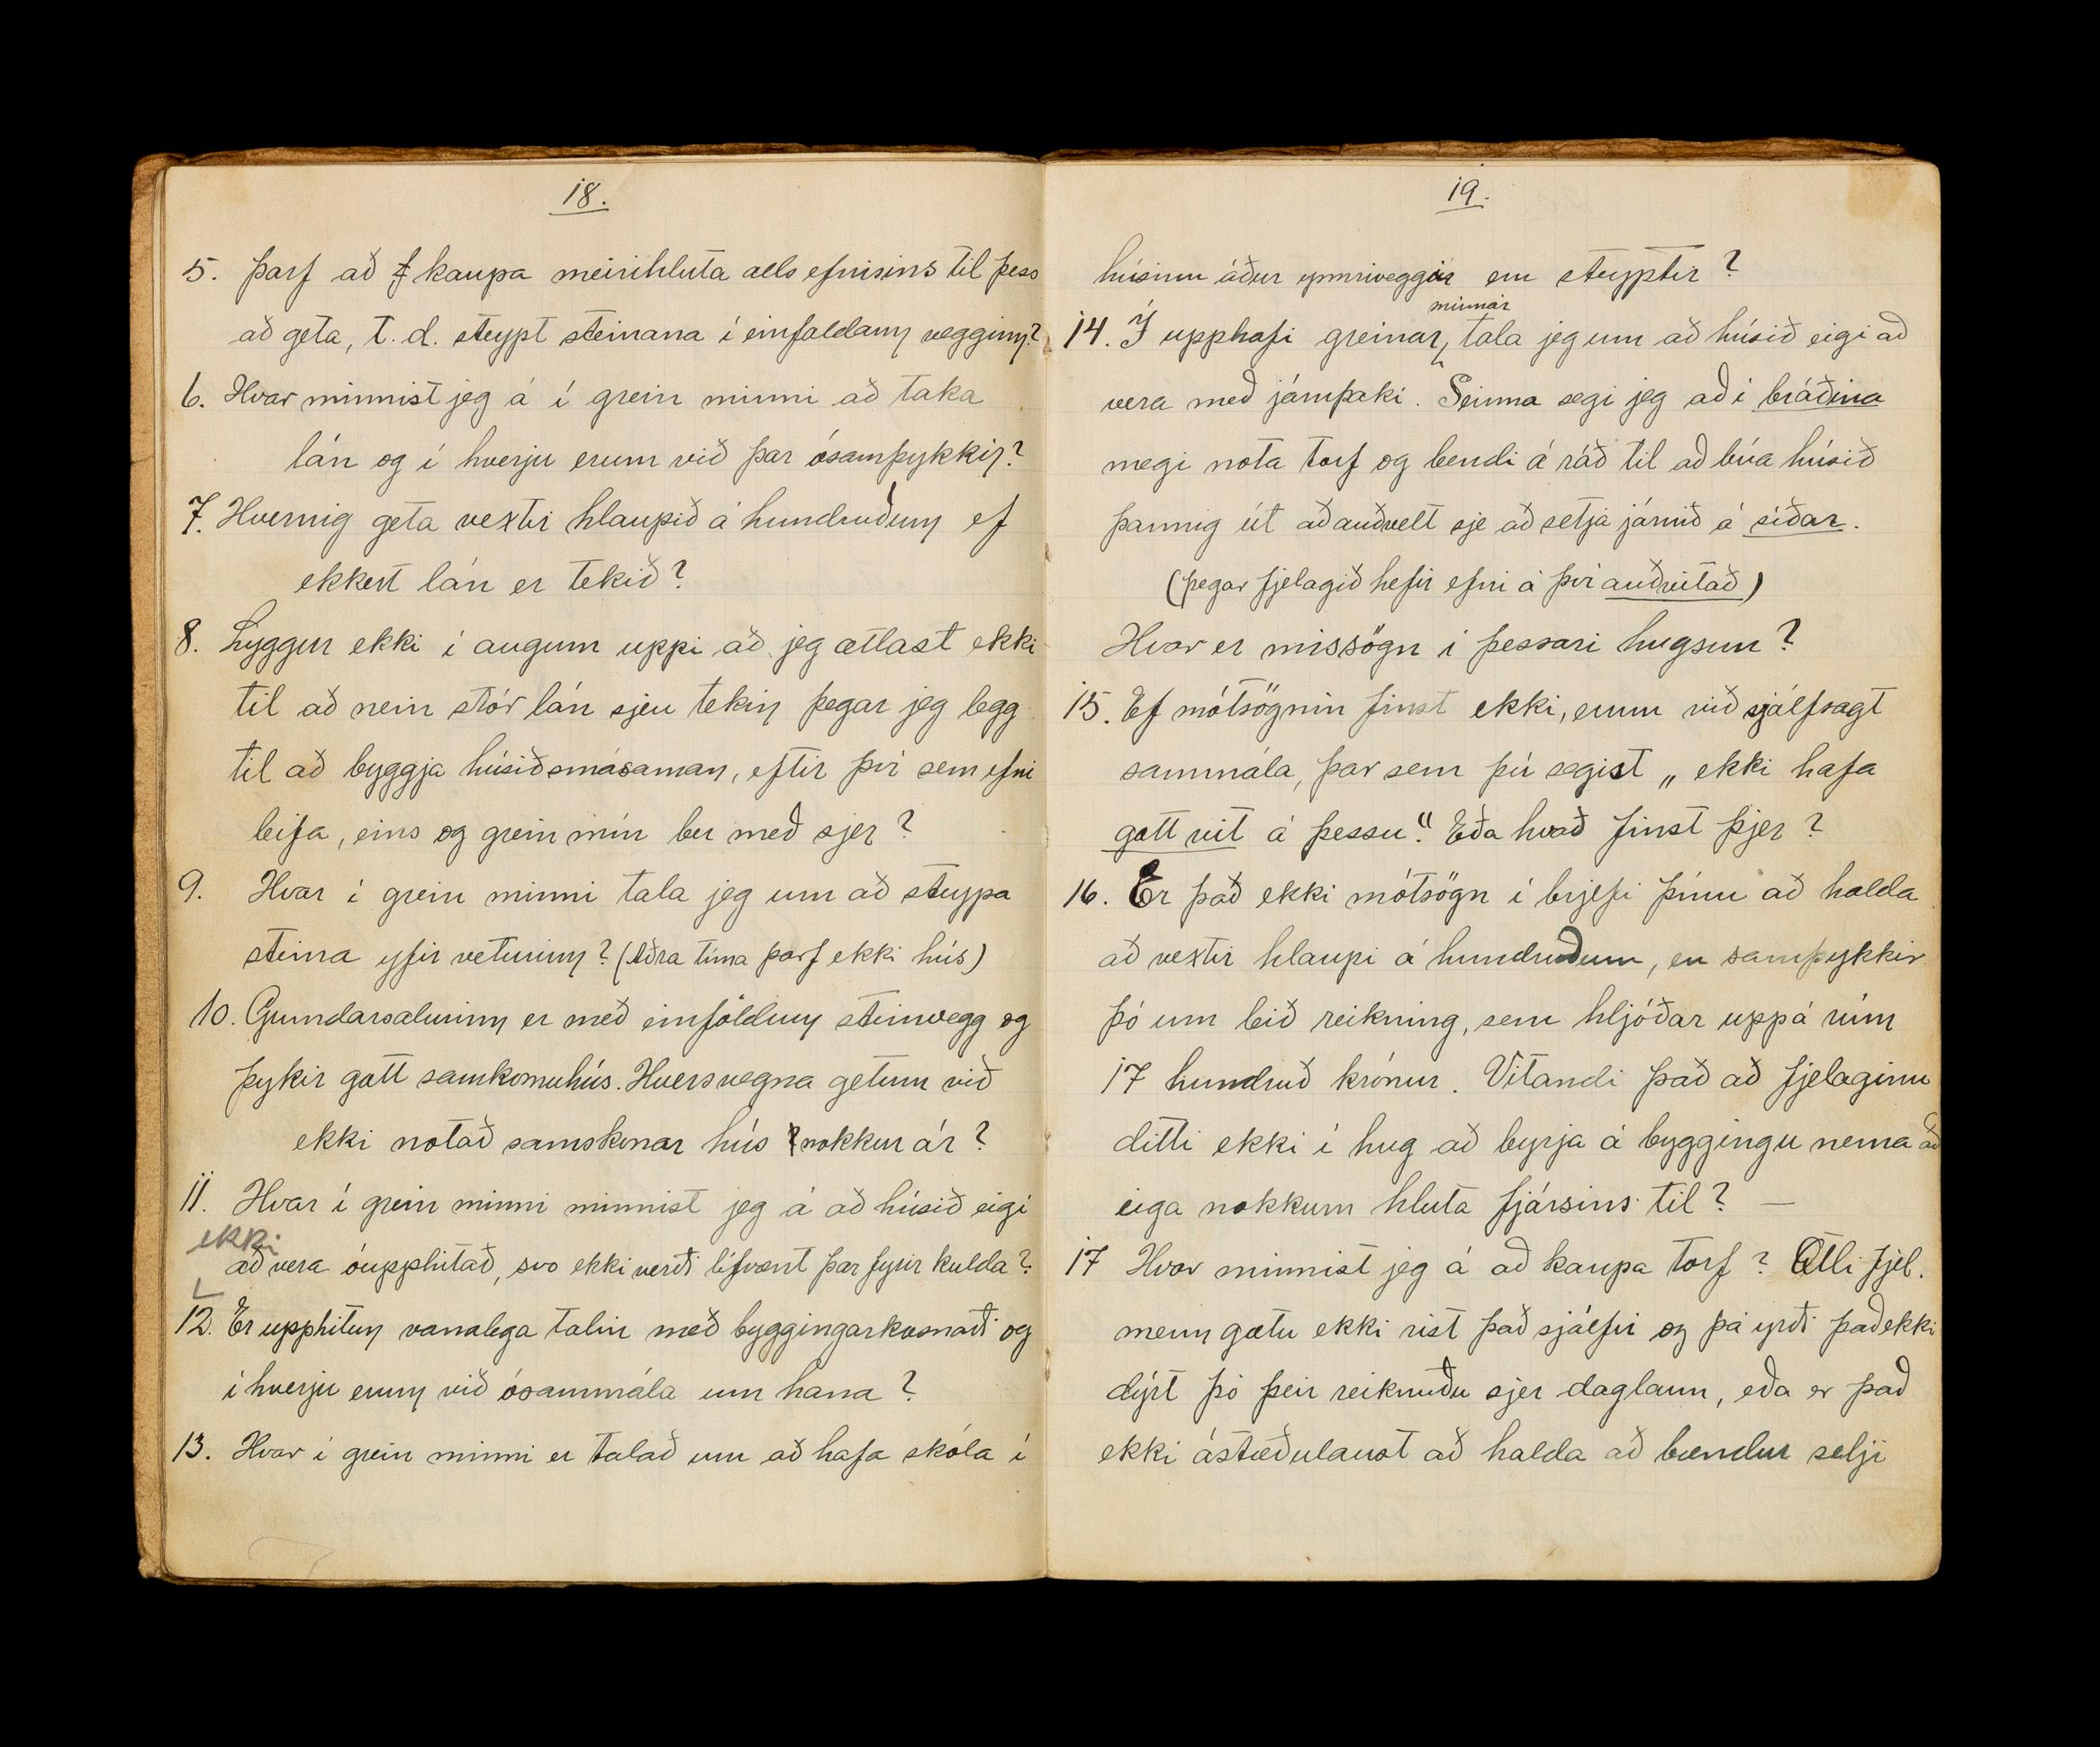 18.
5. Þarf að kaupa meirihluta alls efnisins til þess
að geta, t.d. steypt steinana í einfaldann vegginn?
6. Hvar minnist jeg á í grein minni að taka
lán og í hverju erum við þar ósamþykkir?
7. Hvernig geta vextir hlaupið á hundruðum ef
ekkert lán er tekið?
8. Liggur ekki í augum uppi að jeg ætlast ekki
til að nein stór lán sjeu tekin þegar jeg legg
til að byggja húsið smásaman, eftir því sem efni
leifa, eins og grein mín ber með sjer?
9. Hvar í grein minni tala jeg um að steypa
steina yfir veturinn? (Aðra tíma þarf ekki hús)
10. Grundarsalurinn er með einföldum steinvegg og
þykir gott samkomuhús. Hversvegna getum við
ekki notað samskonar hús nokkur ár?
11. Hvar í grein minni minnist jeg á að húsið eigi
ekki
að vera óupphitað, svo ekki verði lífvænt þar fyrir kulda?
12. Er upphitun vanalega talin með byggingarkosnaði og
í hverju erum við ósammála um hana?
13. Hvar í grein minni er talað um að hafa skóla í
19.
húsinu áður en steyptir?
minnar
14. Í upphafi greinar, tala jeg um að húsið eigi að
vera með járnþaki. Seinna segi jeg að í bráðina
megi nota torf og bendi á ráð til að búa húsið
þannig út að auðvelt sje að setja járnið á síðar.
(þegar fjelagið hefir efni á því auðvitað)
Hvar er missögn í þessari hugsun?
15. Ef mótsögnin finst ekki, erum við sjálfsagt
sammála, þar sem þú segist „ekki hafa
gott vit á þessu“. Eða hvað finst þjer?
16. Er það ekki mótsögn í brjefi þínu að halda
að vextir hlaupi á hundruðum, en samþykkir
þó um leið reikning, sem hljóðar uppá rúm
17 hundruð krónur. Vitandi það að fjelaginu
ditti ekki í hug að byrja á byggingu nema að
eiga nokkurn hluta fjársins til? —
17 Hvar minnist jeg á að kaupa torf? Ætli fjel.
menn gætu ekki rist það sjálfir og þá yrði það ekki
dýrt þó þeir reiknuðu sjer daglaun, eða er það
ekki ástæðulaust að halda að bændur selji